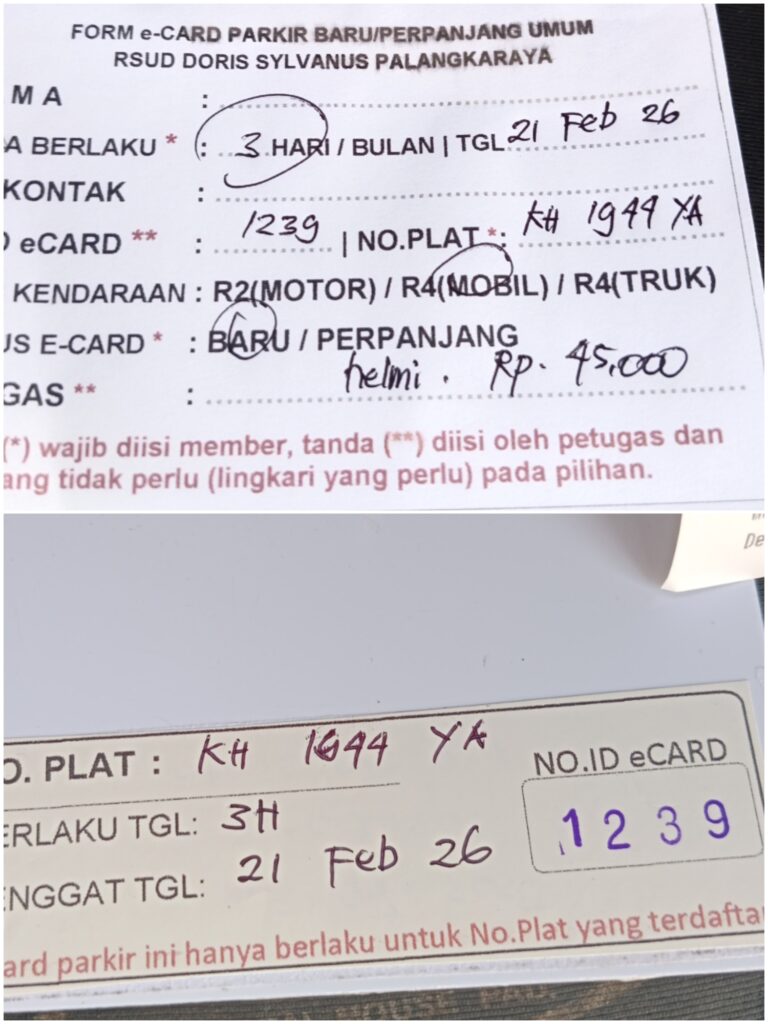 FORM e-CARD PARKIR BARU/PERPANJANG UMUM
RSUD DORIS SYLVANUS PALANGKARAYA
MA :
A BERLAKU * : 3 HARI / BULAN | TGL 21 Feb 26
KONTAK :
eCARD ** : 1239 | NO.PLAT *: KH 1944 YA
KENDARAAN : R2(MOTOR) / R4(MOBIL) / R4(TRUK)
US E-CARD * : BARU / PERPANJANG
GAS ** : helmi . Rp. 45.000
(*) wajib diisi member, tanda (**) diisi oleh petugas dan
ang tidak perlu (lingkari yang perlu) pada pilihan.
De
O. PLAT : KH 1944 YA
NO.ID eCARD
ERLAKU TGL: 3H
1239
ENGGAT TGL: 21 Feb 26
ard parkir ini hanya berlaku untuk No.Plat yang terdafta